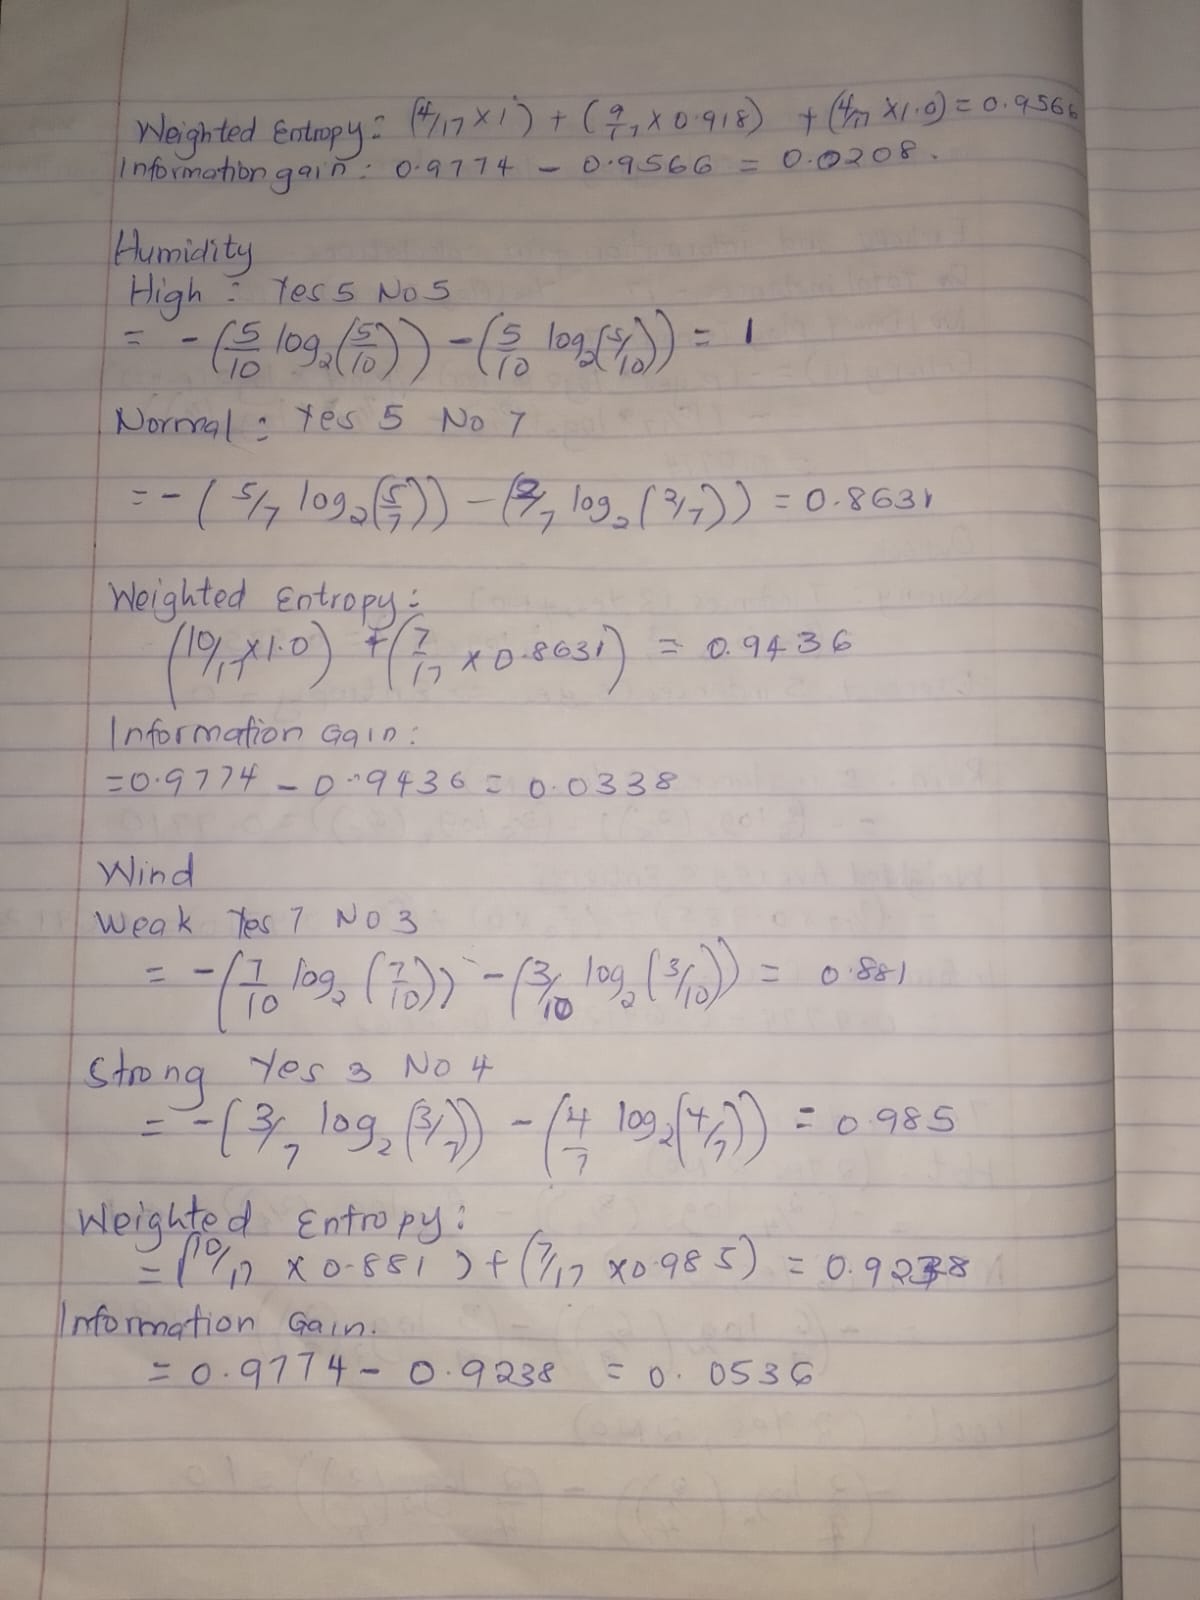 Weighted Entropy = (4/17 × 1) + (9/17 × 0.918) + (4/17 × 1.0) = 0.9566
Information gain: 0.9774 - 0.9566 = 0.0208.
Humidity
High : Yes 5 No 5
= - (5/10 log₂(5/10)) - (5/10 log₂(5/10)) = 1
Normal : Yes 5 No 7
= - (5/7 log₂(5/7)) - (2/7 log₂(2/7)) = 0.8631
Weighted Entropy:
(10/17 × 1.0) + (7/17 × 0.8631) = 0.9436
Information Gain:
= 0.9774 - 0.9436 = 0.0338
Wind
Weak Yes 7 No 3
= - (7/10 log₂(7/10)) - (3/10 log₂(3/10)) = 0.881
Strong Yes 3 No 4
= - (3/7 log₂(3/7)) - (4/7 log₂(4/7)) = 0.985
Weighted Entropy:
= (10/17 × 0.881) + (7/17 × 0.985) = 0.9238
Information Gain.
= 0.9774 - 0.9238 = 0.0536